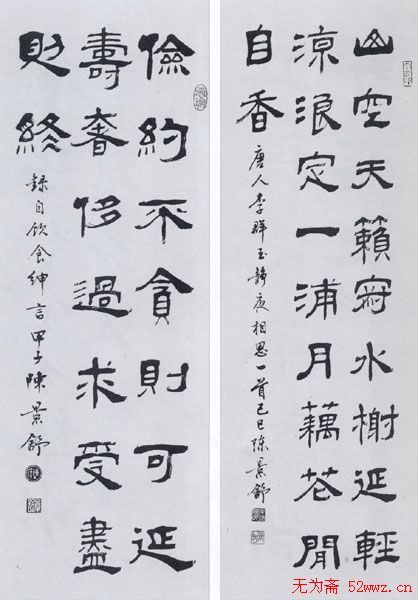 山空天籟寂水榭延輕
涼浪定一浦月藕花閒
自香
唐人李群玉靜夜相思一首己巳陳景舒
儉約不貪則可延
壽奢侈過求受盡
則終
錄自飲食紳言甲子陳景舒
无为斋 52wwz.cn